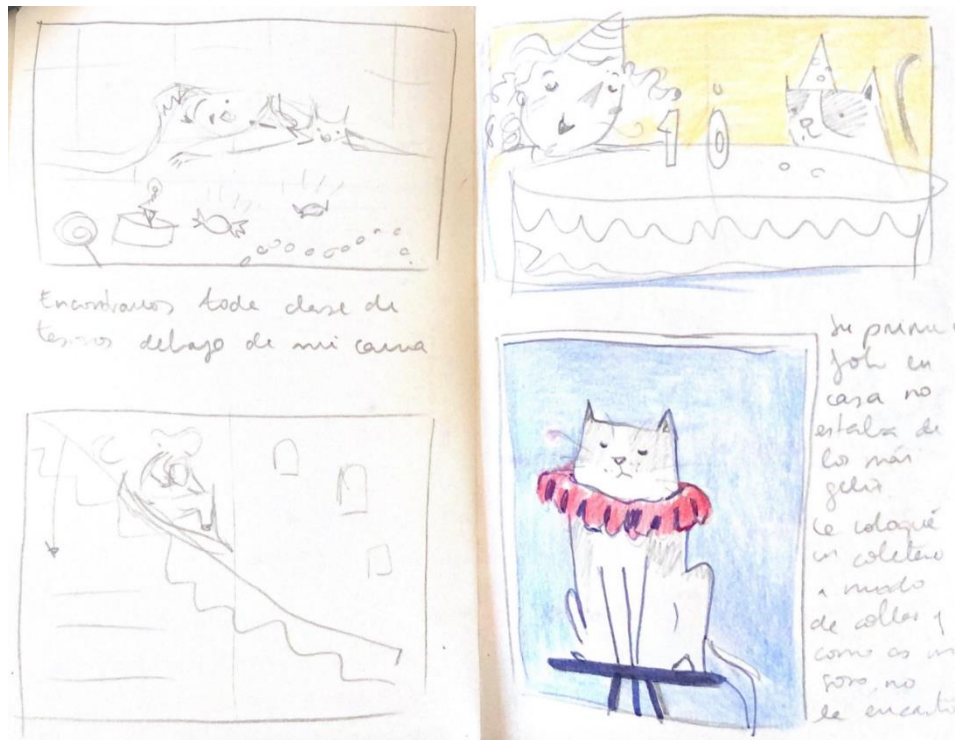 Encontramos toda clase de
tesoros debajo de mi cama
10
Su prime
foto en
casa no
estaba de
lo más
feliz
Le coloqué
un coletero
a modo
de collar y
como es un
gato, no
le encantó